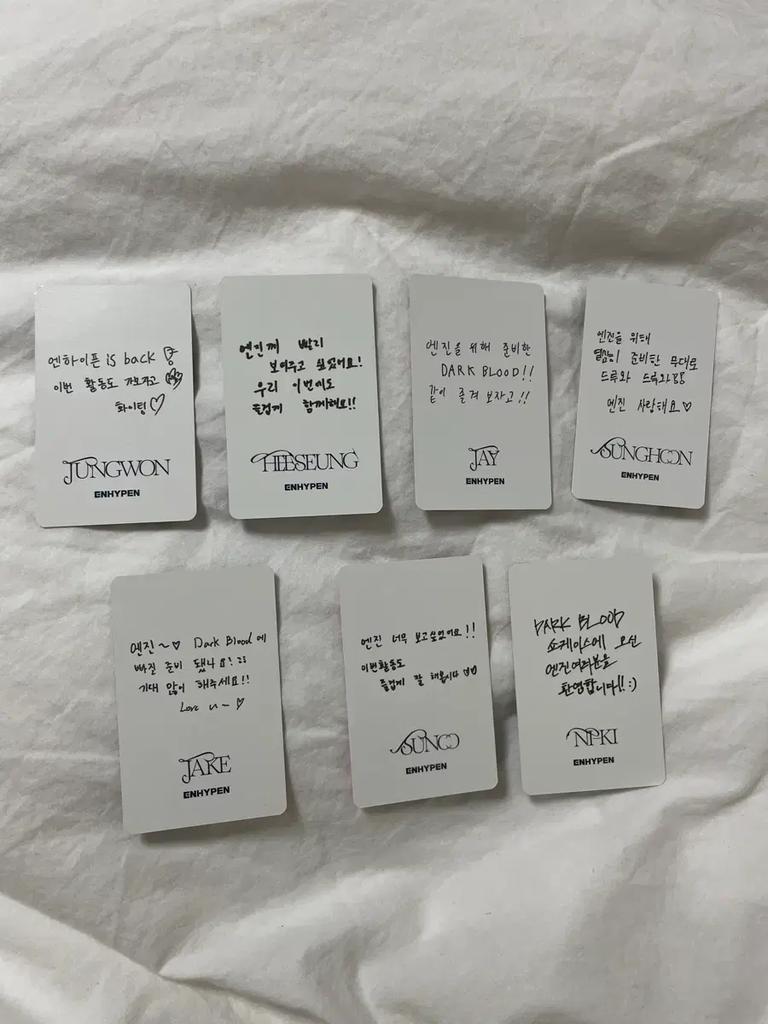 엔하이픈 is back
이번 활동도 가보자고
화이팅♡
JUNGWON
ENHYPEN
엔진께 빨리
보여주고 싶었어요!
우리 이번에도
즐겁게 함께해요!!
HEESEUNG
ENHYPEN
엔진을 위해 준비한
DARK BLOOD!!
같이 즐겨 보자고!!
JAY
ENHYPEN
엔진을 위해
열심히 준비한 무대로
드루와 드루와
엔진 사랑해요♡
SUNGHOON
ENHYPEN
엔진~♡ Dark Blood에
빠질 준비 됐나요?
기대 많이 해주세요!!
Love u~♡
JAKE
ENHYPEN
엔진 너무 보고싶었어요!!
이번활동도
즐겁게 잘 해봅시다
SUNOO
ENHYPEN
DARK BLOOD
쇼케이스에 오신
엔진여러분을
환영합니다!! :)
NI-KI
ENHYPEN